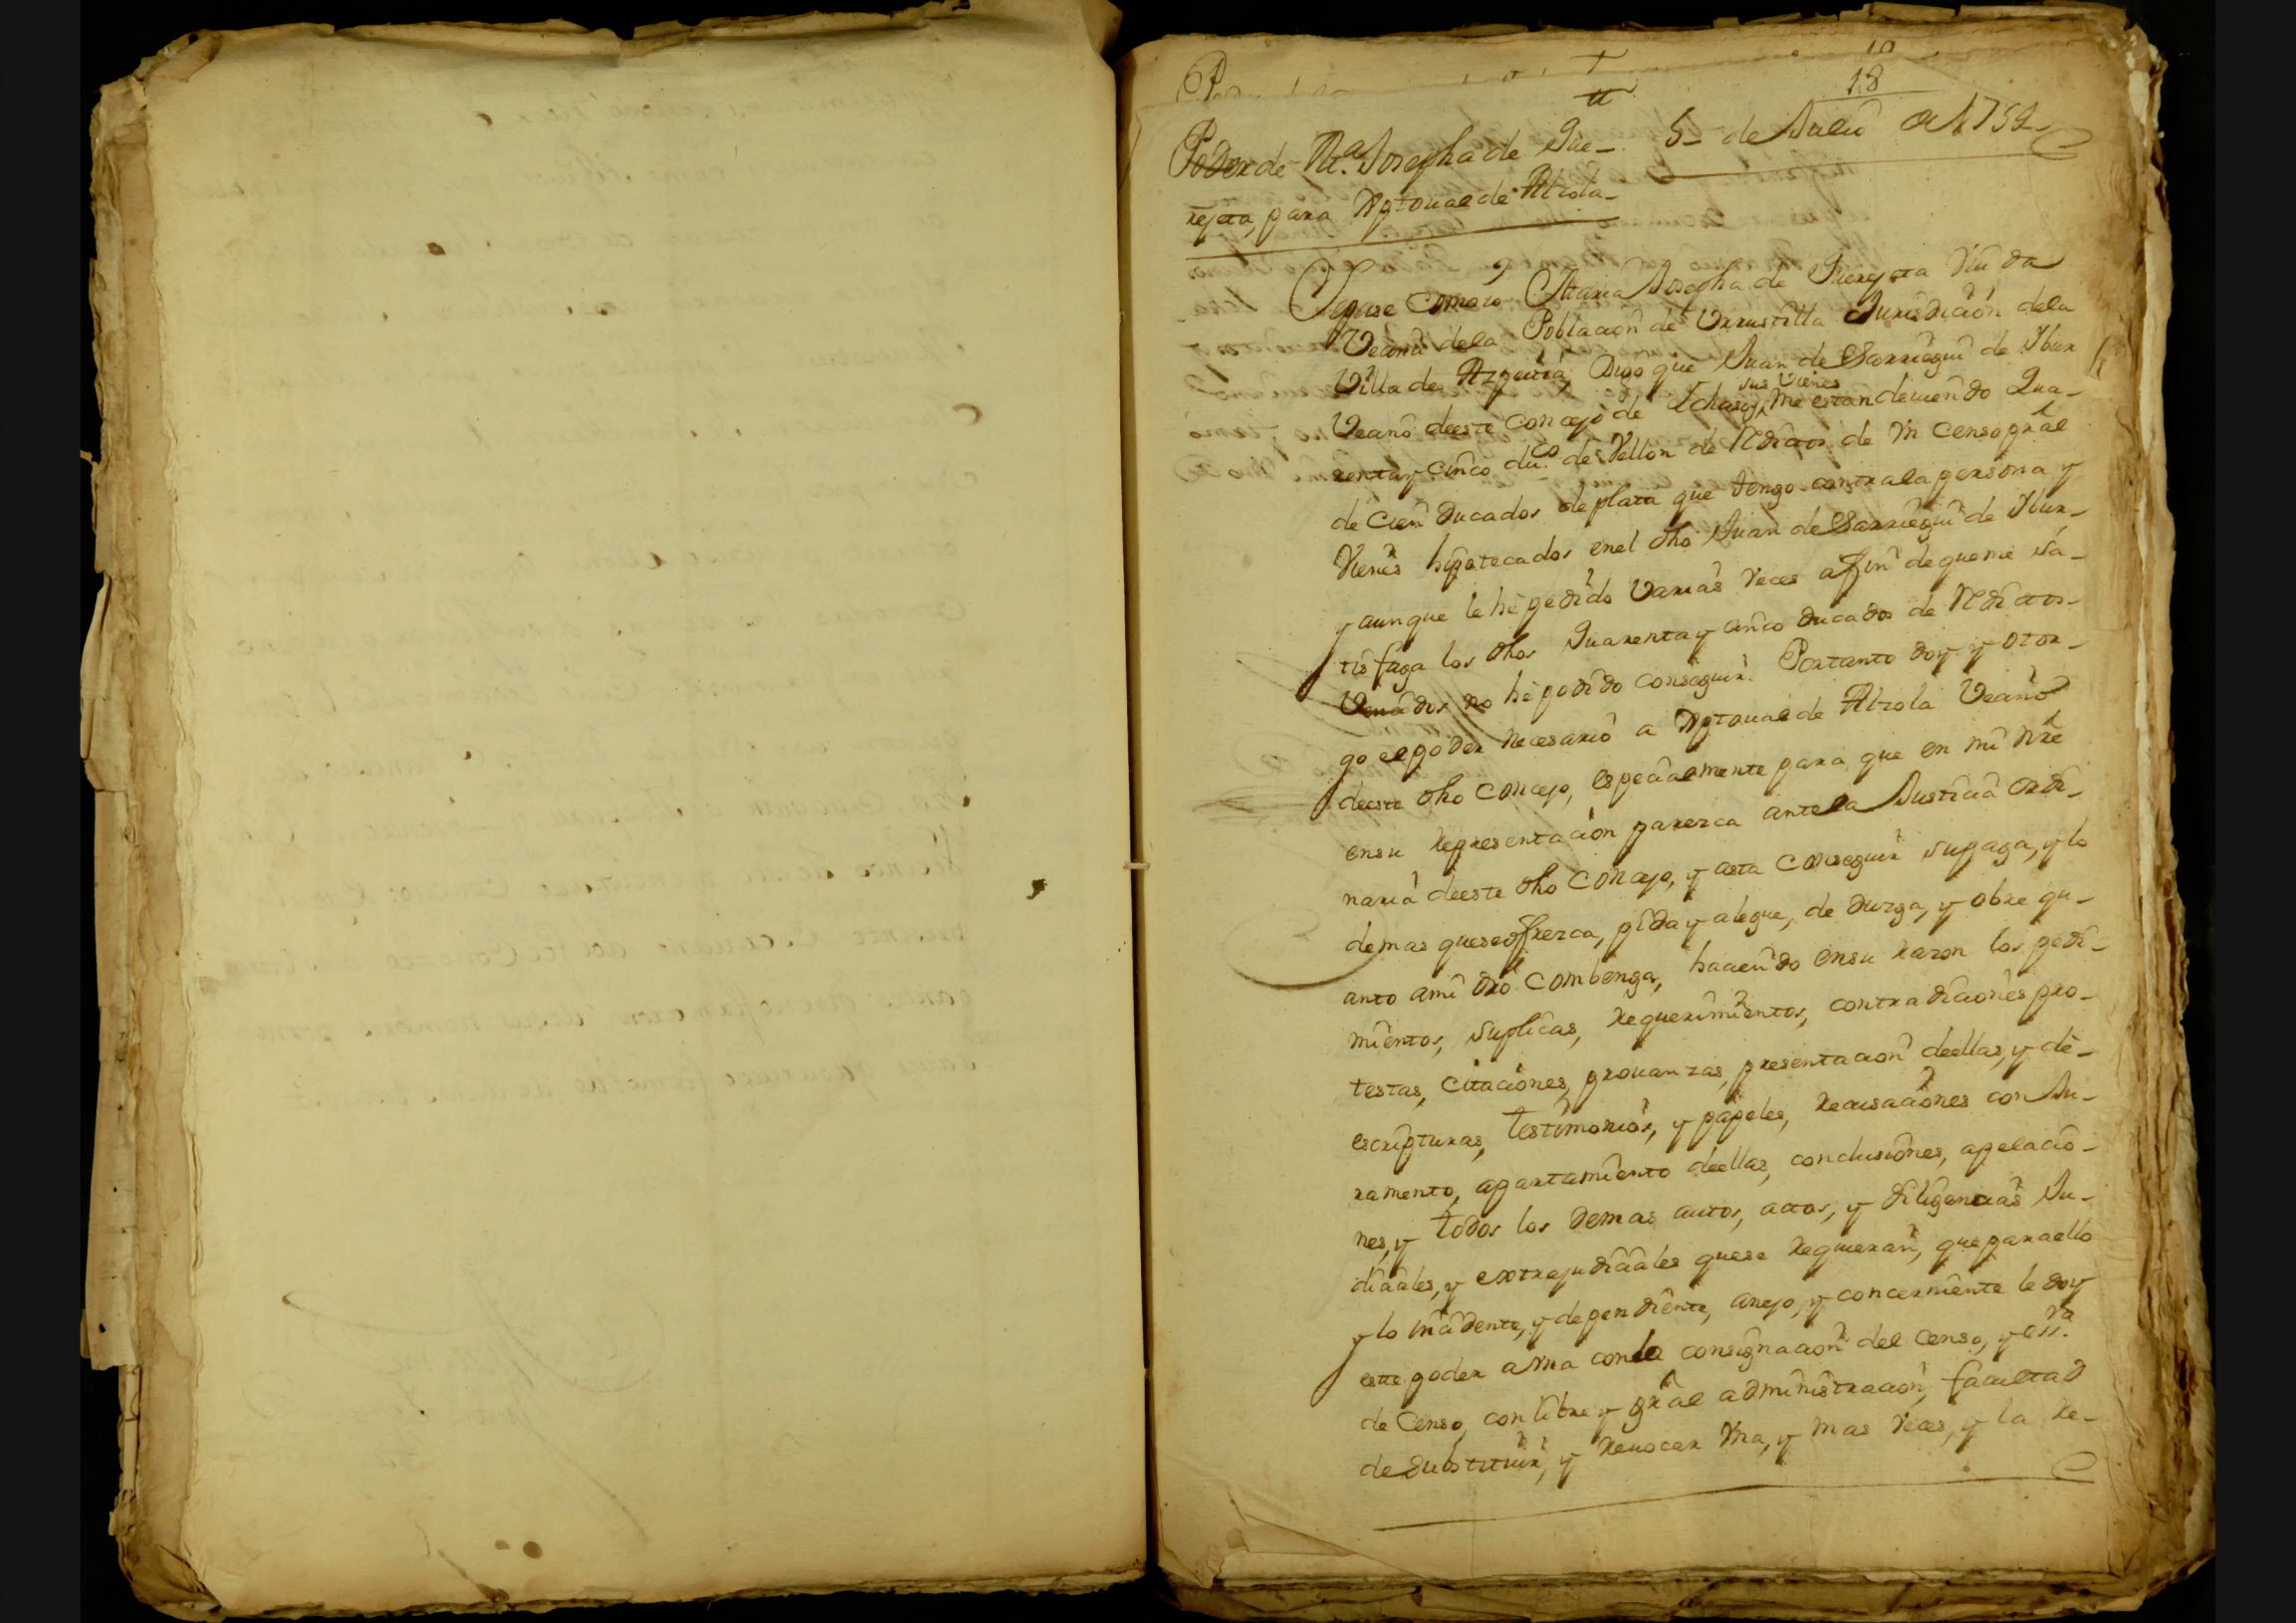 18
Poder de Ma. Josepha de Que- 5- de Julio de 1752
rejeta, para Xptoual de Alzola-
Sepase Como io Maria Josepha de Querejeta Viuda
Vecina dela Poblacion de Vrrustilla Jurisdicion dela
Villa de Azpeitia, Digo que Juan de Sarriegui de Ibar
Vecino deeste Concejo de Ichaso, y sus Vienes me estan deuiendo Qua-
renta y cinco duos. de Vellon de Reditos de Vn Censo pral
de Cien Ducados de plata que tengo contra la persona y
Vienes hipotecados en el dho Juan de Sarriegui de Ibar-
y aunque le hè pedido Varias Veces affin de que me sa-
tisfaga los dhos Quarenta y cinco Ducados de Reditos-
Vencidos no hè podido conseguir. Portanto doy y otor-
go el poder necesario a Xptoual de Alzola Vecino
deeste dho Concejo, especialmente para que en mi nre
ensu representacion parezca ante la Justicia Ordi-
naria deeste dho Concejo, y asta Conseguir su paga, y lo
demas queseoffrezca, pida y alegue, de Duzga, y obre qu-
anto ami dro Combenga, haciendo ensu razon los pedi-
mientos, suplicas, requerimientos, contradiciones pro-
testas, Citaciones, prouanzas, presentacion deellas, y dè-
escripturas, testimonios, y papeles, recusaciones con Ju-
ramento, apartamiento deellas, conclusiones, apelacio-
nes, y todos los demas autos, actos, y diligencias Ju-
diciales, y extrajudiciales quese requieran, que para ello
y lo incidente, y dependiente, anejo, y concerniente le doy
este poder a Vna con la consignacion del Censo, y essra.
de Censo, con libre y gral administracion, facultad
de Substituir, y reuocar Vna, y mas Veces, y la re-